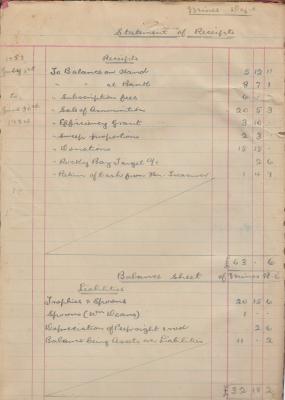 Statement of Receipts
Receipts
July 1st To Balance on Hand 5 12 11
" " at Bank 8 7 1
to " Subscription fees 6 - -
June 30th " Sale of Ammunition 20 5 3
" Efficiency Grant 3 10 -
" Sweep Proportions 2 3
" Donations 15 15 -
" Rocky Bay Target a/c 2 6
" Return of Cash from Hn. Treasurer 1 4
£63 - 6
Balance Sheet of Mines R.C
Liabilities
Trophies & Spoons 20 15 6
Spoons (Wm Deans) 1 - -
Depreciation of & rod 2 6
Balance being Assets over Liabilities 11 - 2
£32 18 2